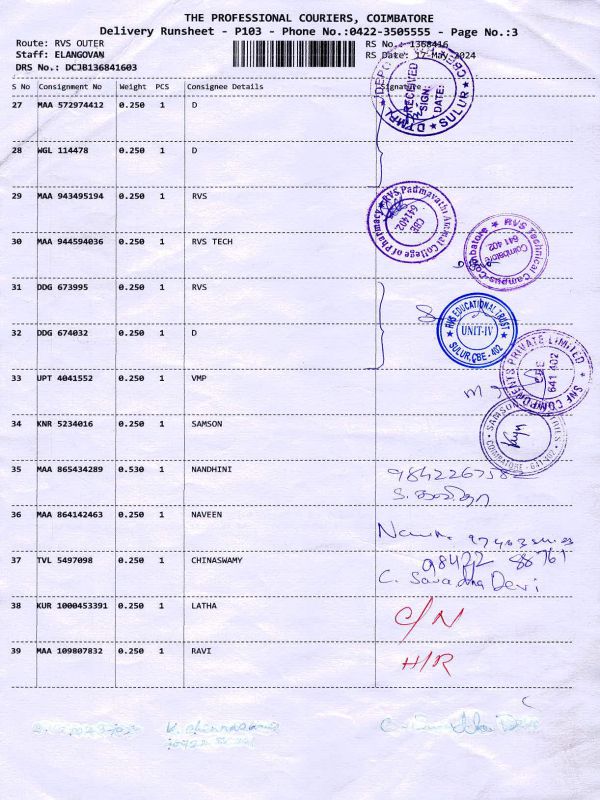 THE PROFESSIONAL COURIERS, COIMBATORE
Delivery Runsheet - P103 - Phone No.:0422-3505555 - Page No.:3
Route: RVS OUTER
RS No.: 1368416
Staff: ELANGOVAN
RS Date: 17-May-2024
DRS No.: DCJB136841603
S No Consignment No Weight PCS Consignee Details Signature
27 MAA 572974412 0.250 1 D
RECEIVED
SIGN:
DATE:
SULUR
28 WGL 114478 0.250 1 D
29 MAA 943495194 0.250 1 RVS
RVS Padmavathi Ammal College of Pharmacy
CBE
641402.
30 MAA 944594036 0.250 1 RVS TECH
RVS Technical Campus-Coimbatore
Coimbatore
641 402
31 DDG 673995 0.250 1 RVS
RVS EDUCATIONAL TRUST
UNIT-IV
SULUR, CBE - 402
32 DDG 674032 0.250 1 D
33 UPT 4041552 0.250 1 VMP
SNF COMPONENTS PRIVATE LIMITED
CBE
641 402
34 KNR 5234016 0.250 1 SAMSON
SAMSON
COIMBATORE - 641-402
35 MAA 865434289 0.530 1 NANDHINI
36 MAA 864142463 0.250 1 NAVEEN
37 TVL 5497098 0.250 1 CHINASWAMY
98422 88761
Devi
38 KUR 1000453391 0.250 1 LATHA
C/N
39 MAA 109807832 0.250 1 RAVI
H/R